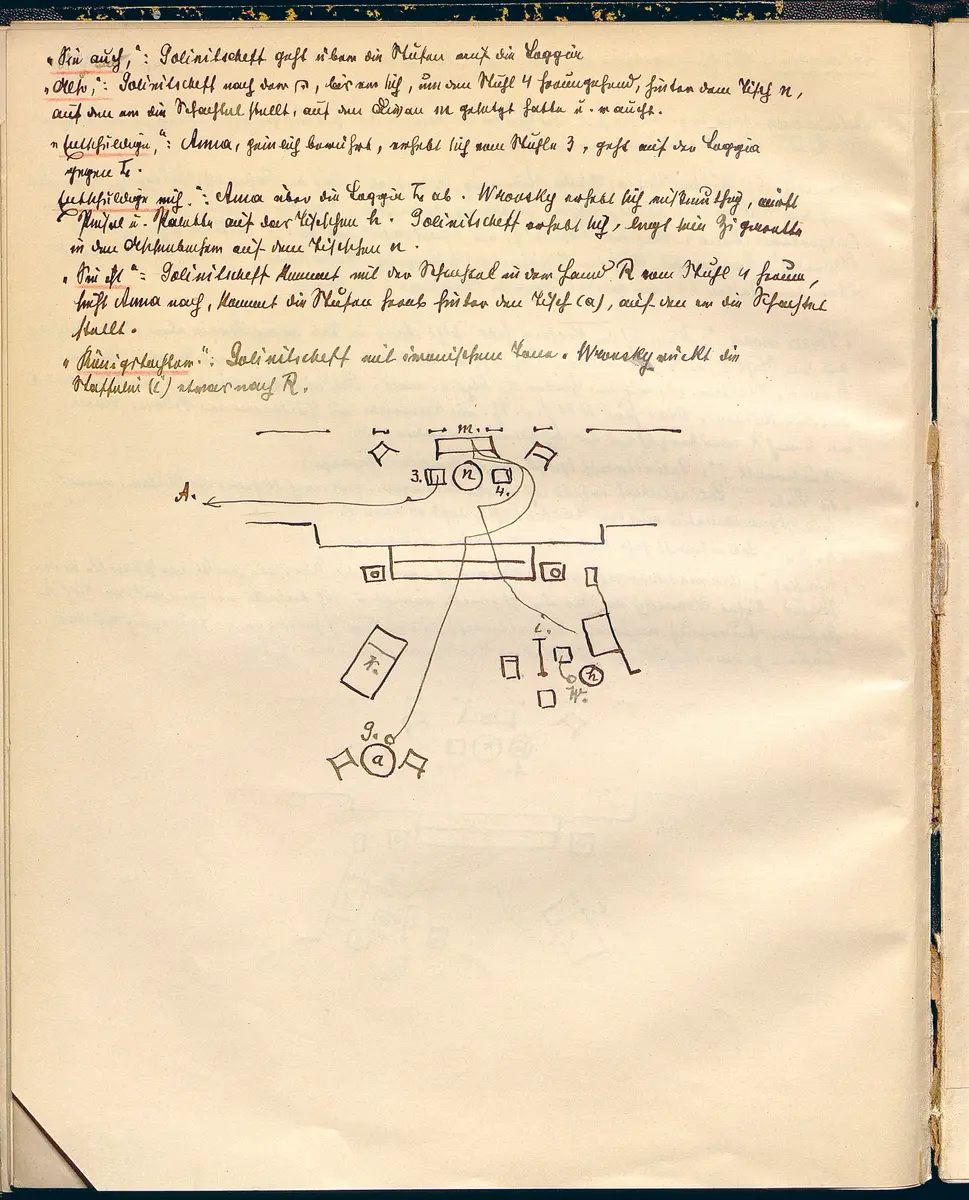 „Sie auch,“: Golinitscheff geht über die Stufen auf die Loggia
„Also,“: Golinitscheff nach der, bis er sich, um den Stuhl 4 herumgehend, hinter dem Tisch n,
auf den er die Schachtel stellt, auf den Diwan m gesetzt hatte u. raucht.
„Entschuldige,“: Anna, peinlich berührt, erhebt sich vom Stuhle 3, geht auf der Loggia
gegen L.
Entschuldige mich.“: Anna über die Loggia L ab. Wronsky erhebt sich mißmuthig, wirft
Pinsel u. Palette auf das Tischchen h. Golinitscheff erhebt sich, legt sein Zigarette
in den Aschenbecher auf dem Tischchen n.
„Sie ist“: Golinitscheff kommt mit der Schachtel in der Hand R vom Stuhl 4 herum,
sieht Anna nach, kommt die Stufen herab hinter den Tisch (a), auf den er die Schachtel
stellt.
„Königstochter.“: Golinitscheff mit ironischem Tone. Wronsky rückt die
Staffelei (i) etwas nach R.
m.
3. n 4.
A.
i.
k.
h
W.
g.
a